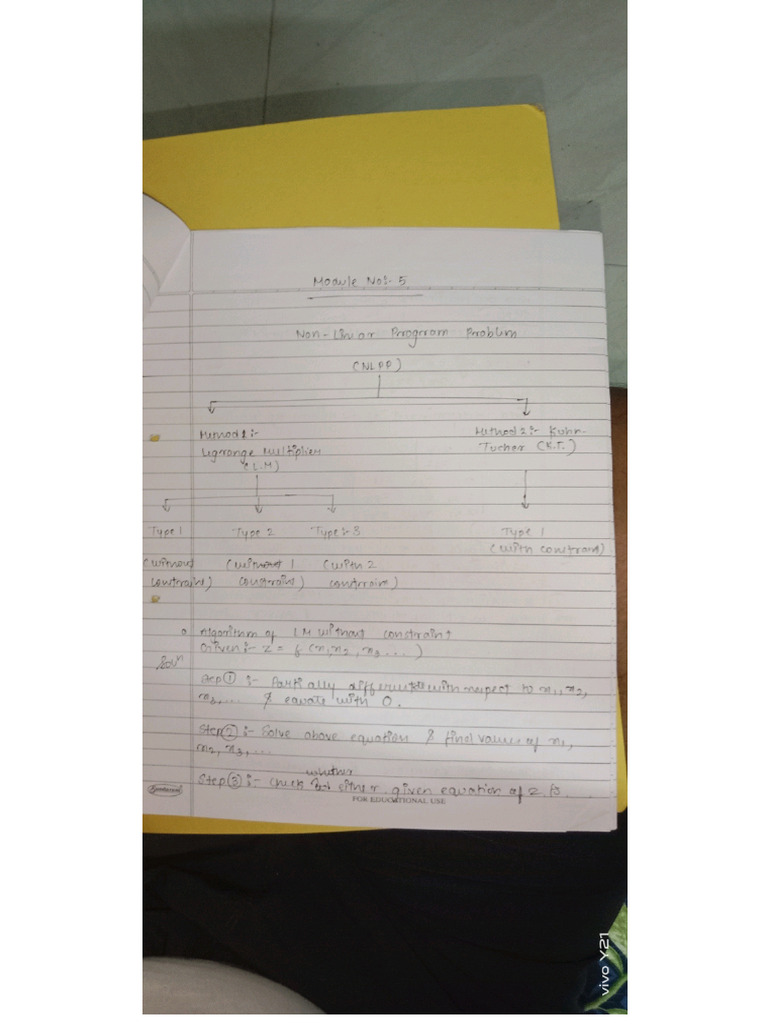 Module No:- 5
Non-Linear Program Problem
(NLPP)
Method 1:-
Method 2:- Kuhn-
Lagrange Multiplier
Tucker (K.T.)
(L.M)
Type 1
Type 2
Type:- 3
Type 1
(with constraint)
(without
(without 1
(with 2
constraint)
constraint)
constraint)
Algorithm of LM without constraint
Given:- Z = f (x1, x2, x3 ...)
Sol^n
Step ① :- Partially differentiate with respect to x1, x2,
x3, ... & equate with 0.
Step ② :- Solve above equation & find values of x1,
x2, x3, ...
whether
Step ③ :- Check either given equation of z is
Sundaram
FOR EDUCATIONAL USE
vivo Y21